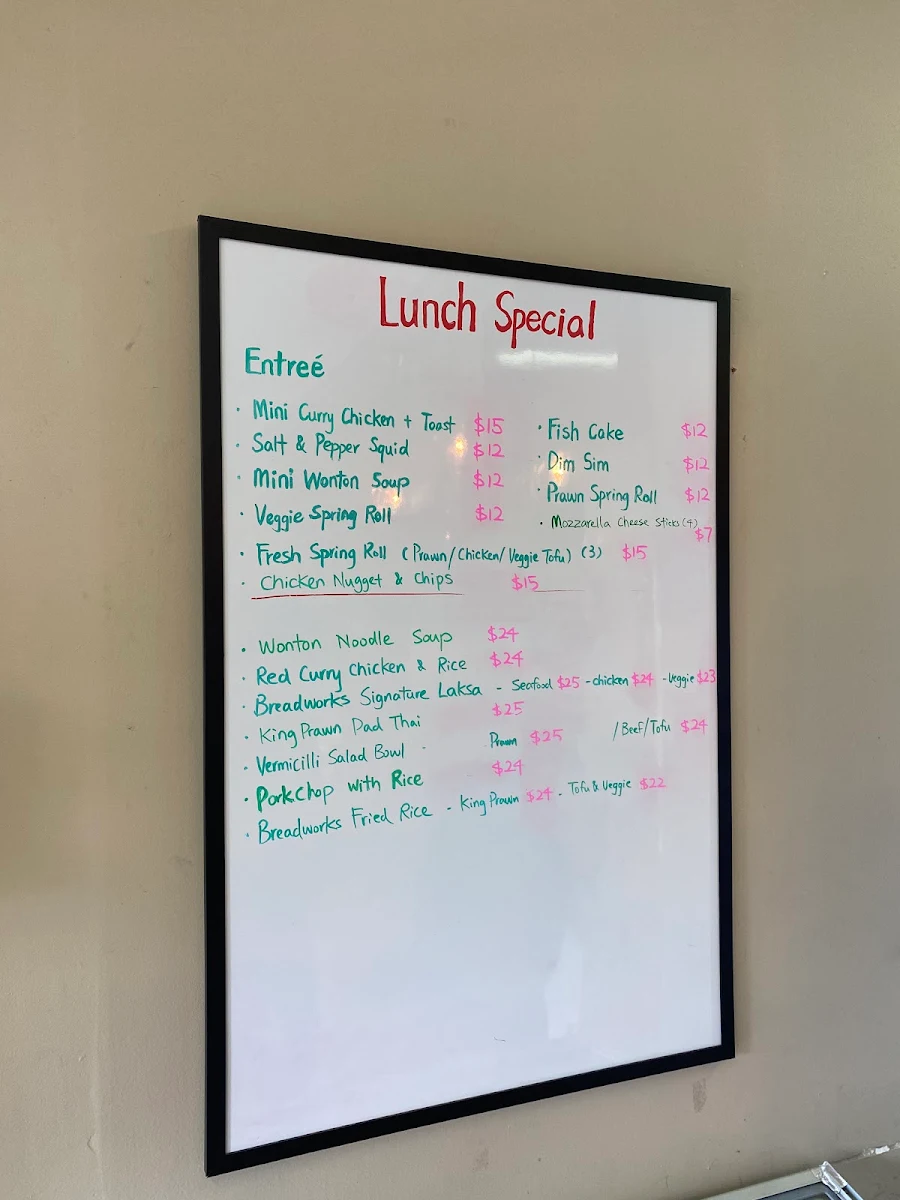 Lunch Special
Entreé
· Mini Curry Chicken + Toast $15
· Salt & Pepper Squid $12
· Mini Wonton Soup $12
· Veggie Spring Roll $12
· Fish Cake $12
· Dim Sim $12
· Prawn Spring Roll $12
· Mozzarella Cheese Sticks (4) $7
· Fresh Spring Roll (Prawn/Chicken/Veggie Tofu) (3) $15
· Chicken Nugget & Chips $15
· Wonton Noodle Soup $24
· Red Curry Chicken & Rice $24
· Breadworks Signature Laksa - Seafood $25 - chicken $24 - Veggie $23
· King Prawn Pad Thai $25
· Vermicilli Salad Bowl Prawn $25 / Beef/Tofu $24
· Porkchop with Rice $24
· Breadworks Fried Rice - King Prawn $24 - Tofu & Veggie $22